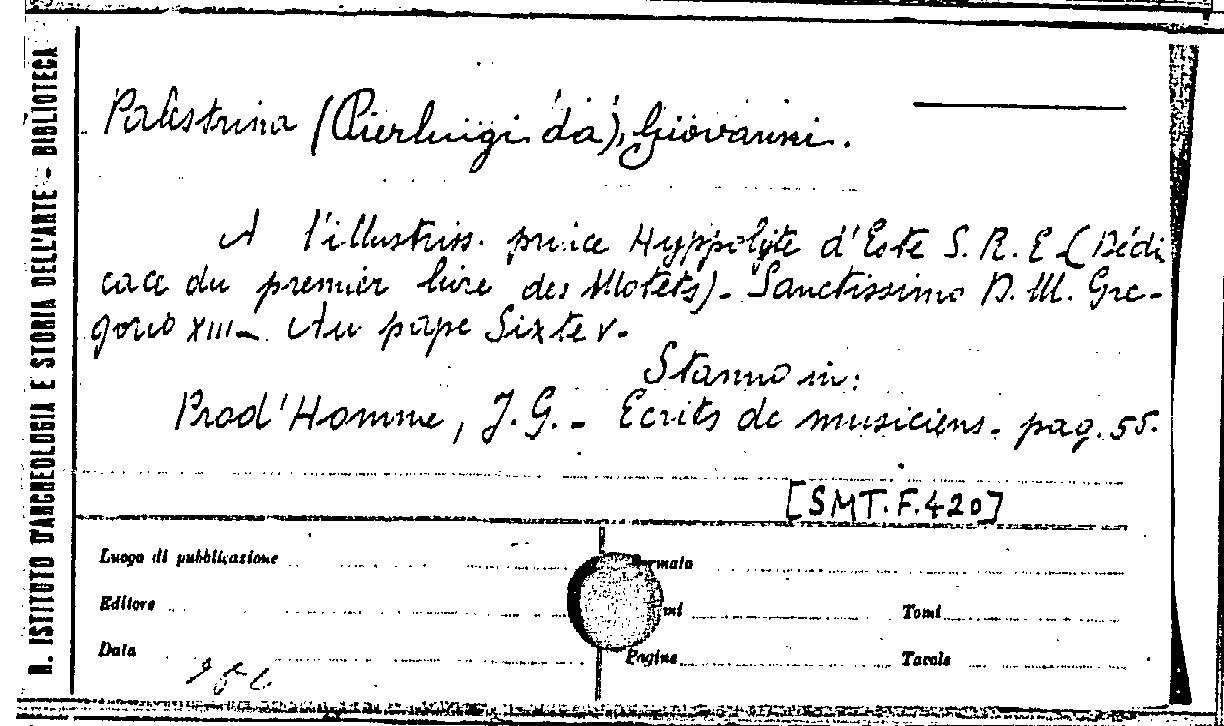 R. ISTITUTO D'ARCHEOLOGIA E STORIA DELL'ARTE - BIBLIOTECA
Palestrina (Pierluigi da), Giovanni.
A l'illustriss. prince Hyppolyte d'Este S. R. E. (Dédi
cace du premier livre des Motets). Sanctissimo D. M. Gre-
gorio XIII - Au pape Sixte V.
Stanno in:
Prod'Homme, J. G. - Ecrits de musiciens. pag. 55.
[SMT.F.420]
Luogo di pubblicazione
Editore Tomi
Data Pagine Tavole